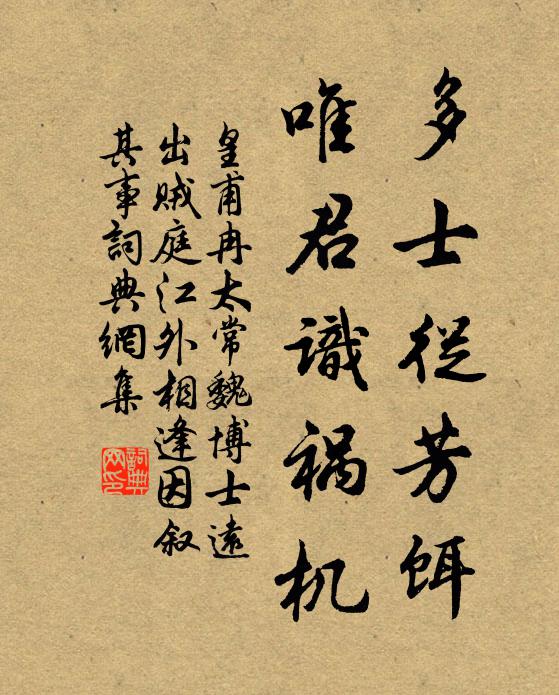 多士從芳餌
唯君識祸机
皇甫冉太常魏博士遠
出賊庭江外相逢因叙
其事詞典網集
詞典
网印